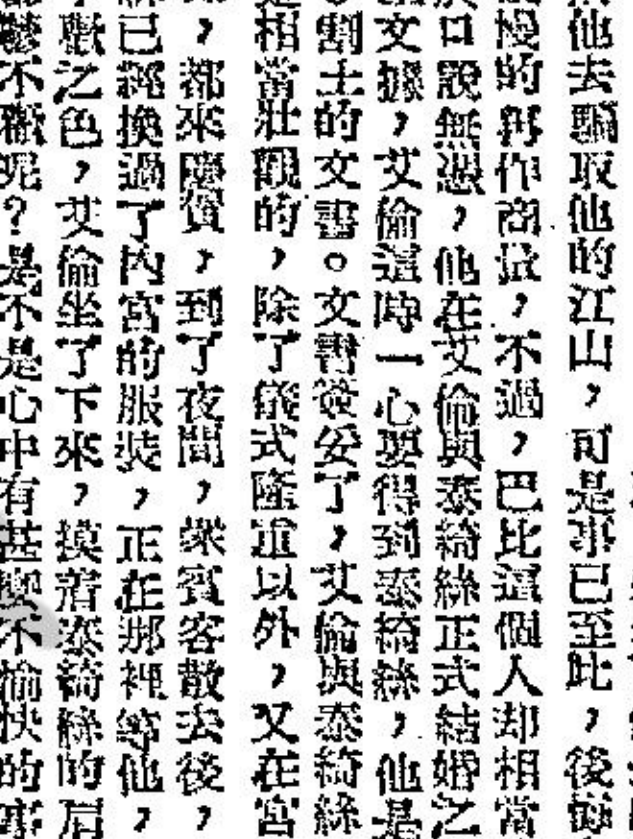 他去騙取他的江山，可是事已至此，後悔
慢的再作商量，不過，巴比這個人却相當
口說無憑，他在艾倫與泰綺絲正式結婚之
文據，艾倫這時一心要得到泰綺絲，他是
割土的文書。文書簽妥了，艾倫與泰綺絲
相當壯觀的，除了儀式隆重以外，又在宮
，都來慶賀，到了夜間，衆賓客散去後，
已經換過了內宮的服裝，正在那裡等他，
歡之色，艾倫坐了下來，摸着泰綺絲的肩
不歡呢？是不是心中有甚麼不愉快的事